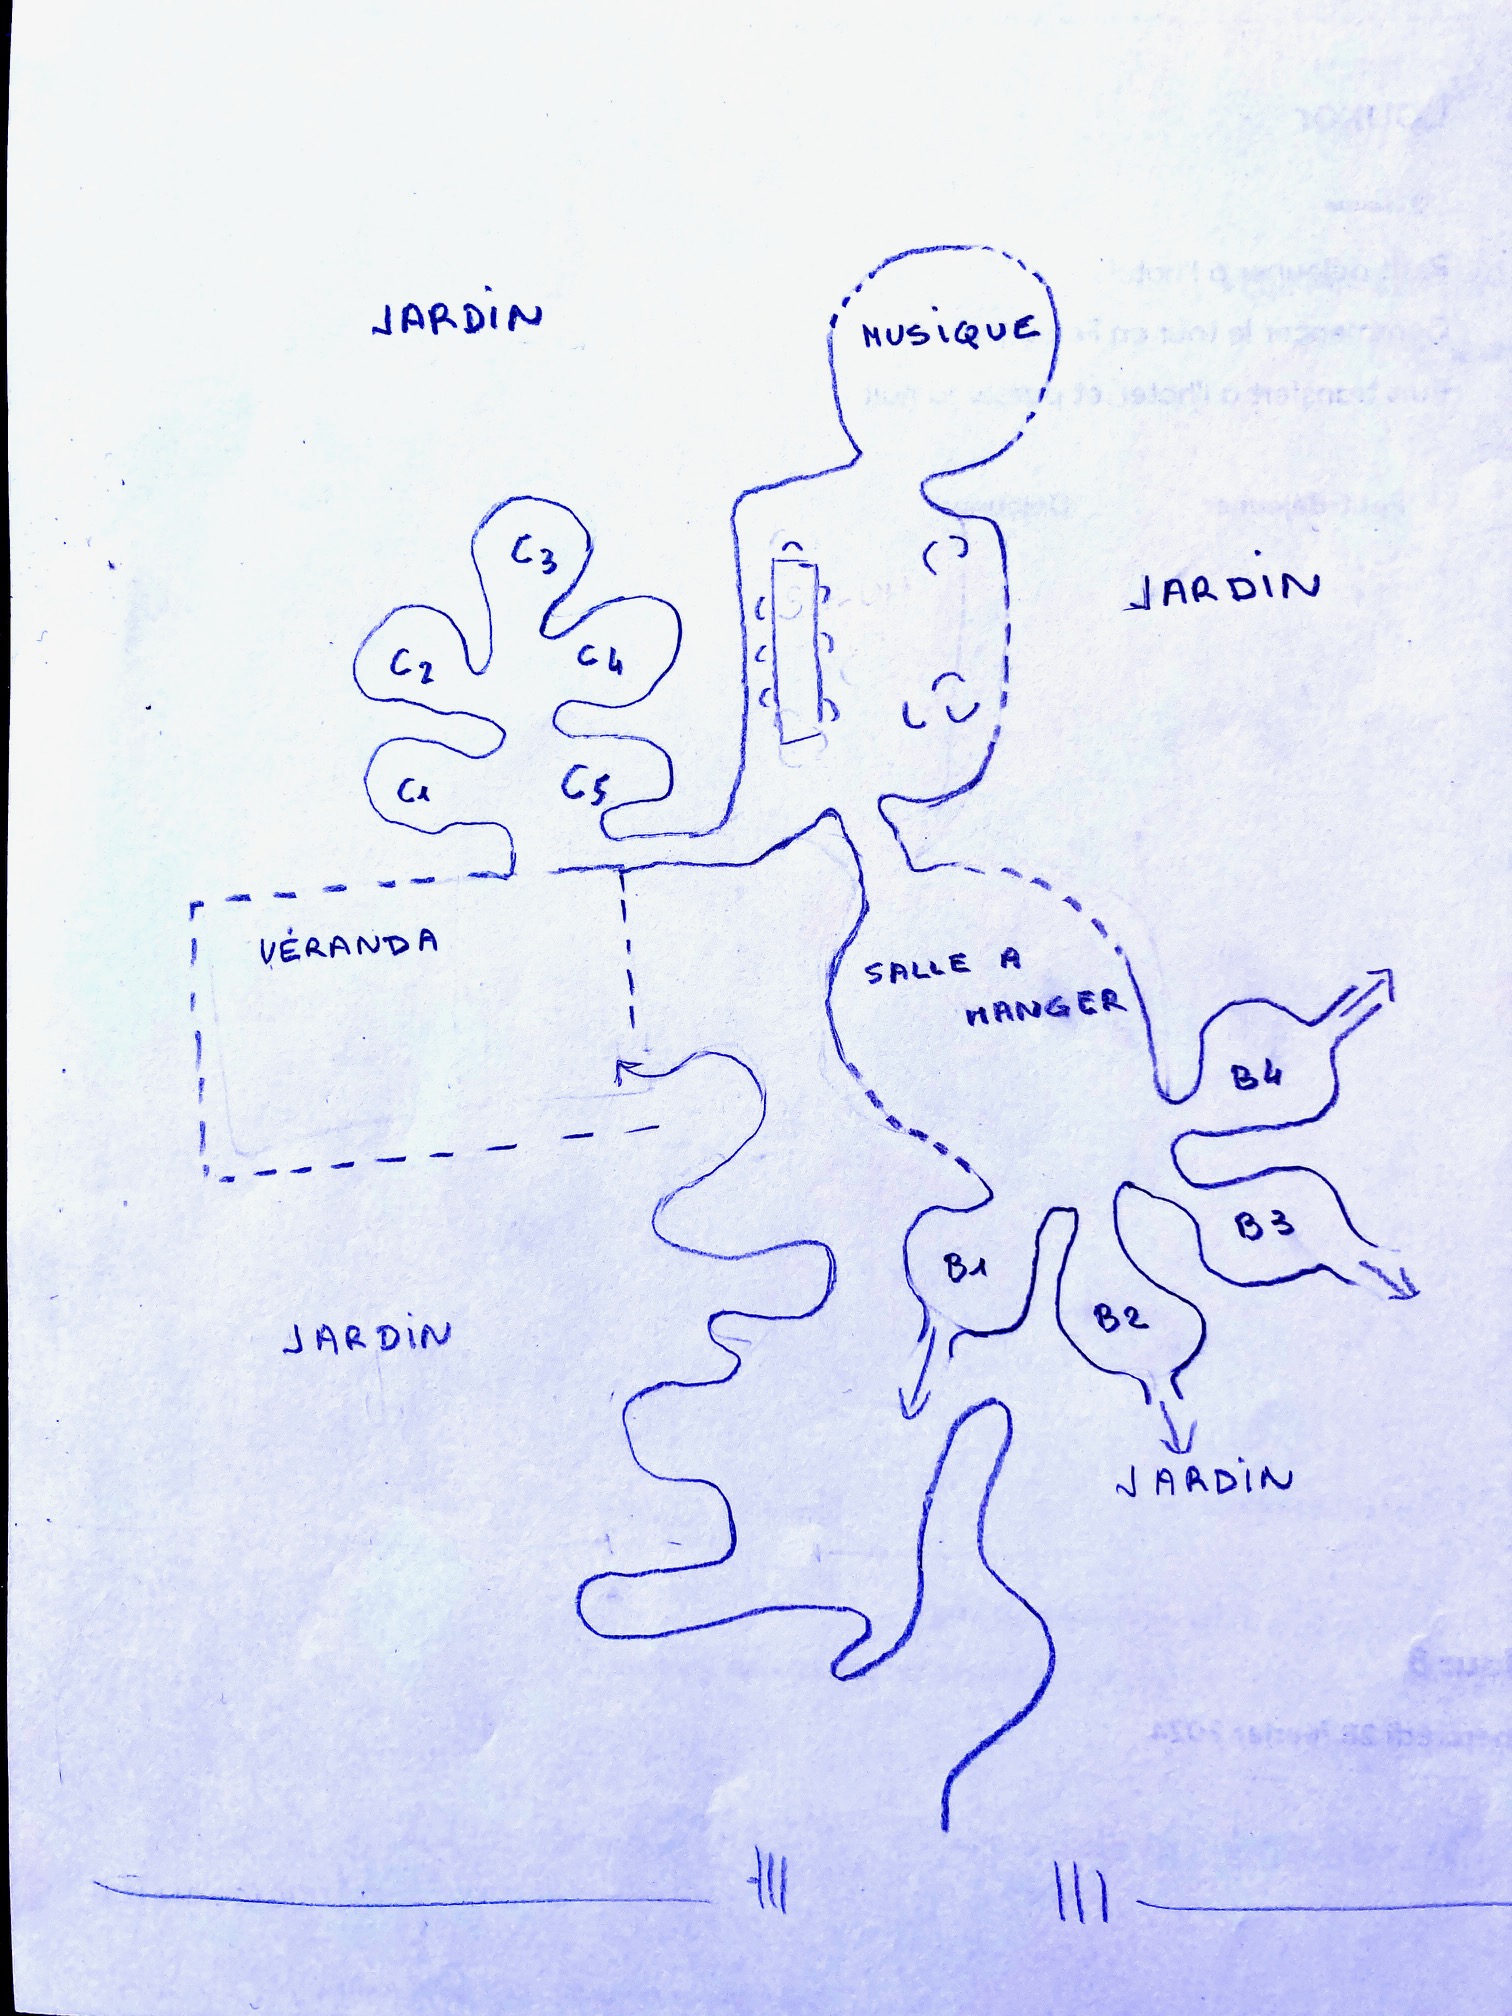 JARDIN
MUSIQUE
JARDIN
C3
C2
C4
C1
C5
VÉRANDA
SALLE A
MANGER
B4
B3
B1
B2
JARDIN
JARDIN